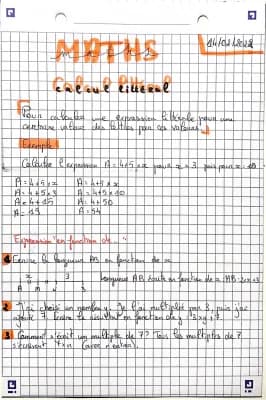 14/02/2022
MATHS
maths
Calcul littéral
Pour calculer une expression littérale pour une
certaine valeur des lettres par ces valeurs
Exemple
Calculer l'expression A = 4+5×x pour x = 3 puis pour x = 10
A = 4+5×x A = 4+5×x
A = 4+5×3 A = 4+5×10
A = 4+15 A = 4+50
A = 19 A = 54
Expression "en fonction de..."
1 la longueur AB en fonction de x
x 3
A M
Longueur AB en fonction de x: AB
2 J'ai choisi un nombre y. Je l'ai multiplié par 3, puis j'ai
ajouté 7. Ecrire le résultat en fonction de y
3 Comment s'écrit un multiple de 7? Tous les multiples de 7
s'écrivent 7×n (avec n entier).